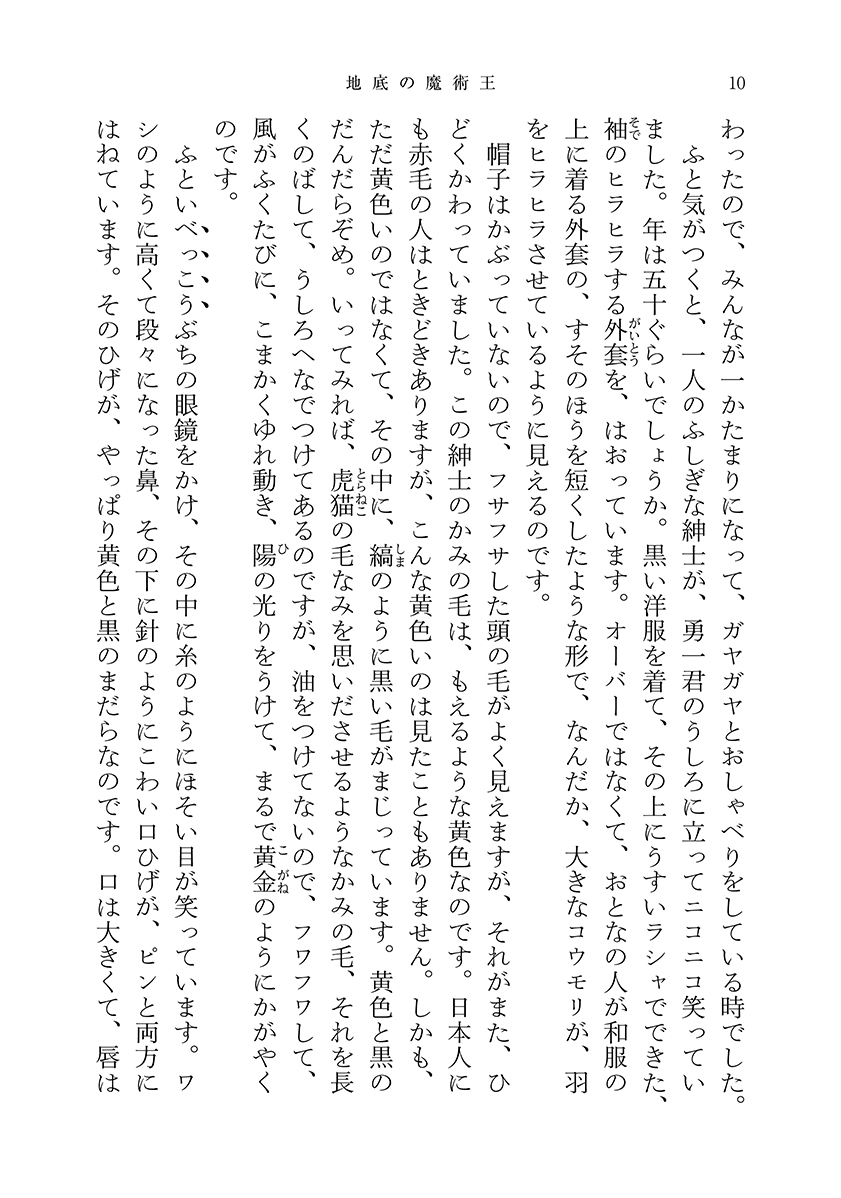 地底の魔術王
10
わったので、みんなが一かたまりになって、ガヤガヤとおしゃべりをしている時でした。
ふと気がつくと、一人のふしぎな紳士が、勇一君のうしろに立ってニコニコ笑ってい
ました。年は五十ぐらいでしょうか。黒い洋服を着て、その上にうすいラシャでできた、
袖のヒラヒラする外套を、はおっています。オーバーではなくて、おとなの人が和服の
上に着る外套の、すそのほうを短くしたような形で、なんだか、大きなコウモリが、羽
をヒラヒラさせているように見えるのです。
帽子はかぶっていないので、フサフサした頭の毛がよく見えますが、それがまた、ひ
どくかわっていました。この紳士のかみの毛は、もえるような黄色なのです。日本人に
も赤毛の人はときどきありますが、こんな黄色いのは見たこともありません。しかも、
ただ黄色いのではなくて、その中に、縞のように黒い毛がまじっています。黄色と黒の
だんだらぞめ。いってみれば、虎猫の毛なみを思いださせるようなかみの毛、それを長
くのばして、うしろへなでつけてあるのですが、油をつけてないので、フワフワして、
風がふくたびに、こまかくゆれ動き、陽の光りをうけて、まるで黄金のようにかがやく
のです。
ふといべっこうぶちの眼鏡をかけ、その中に糸のようにほそい目が笑っています。ワ
シのように高くて段々になった鼻、その下に針のようにこわい口ひげが、ピンと両方に
はねています。そのひげが、やっぱり黄色と黒のまだらなのです。口は大きくて、唇は